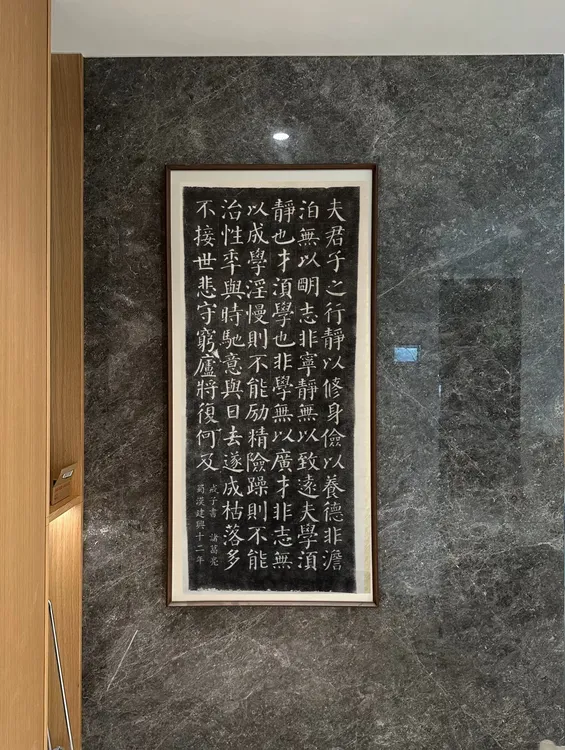 夫君子之行靜以修身儉以養德非澹
泊無以眀志非寧靜無以致遠夫學湏
靜也才湏學也非學無以廣才非志無
以成學淫慢則不能励精險躁則不能
治性秊與時馳意與日去遂成枯落多
不接世悲守窮廬將復何及
戒子書 諸葛亮
蜀漢建興十二年